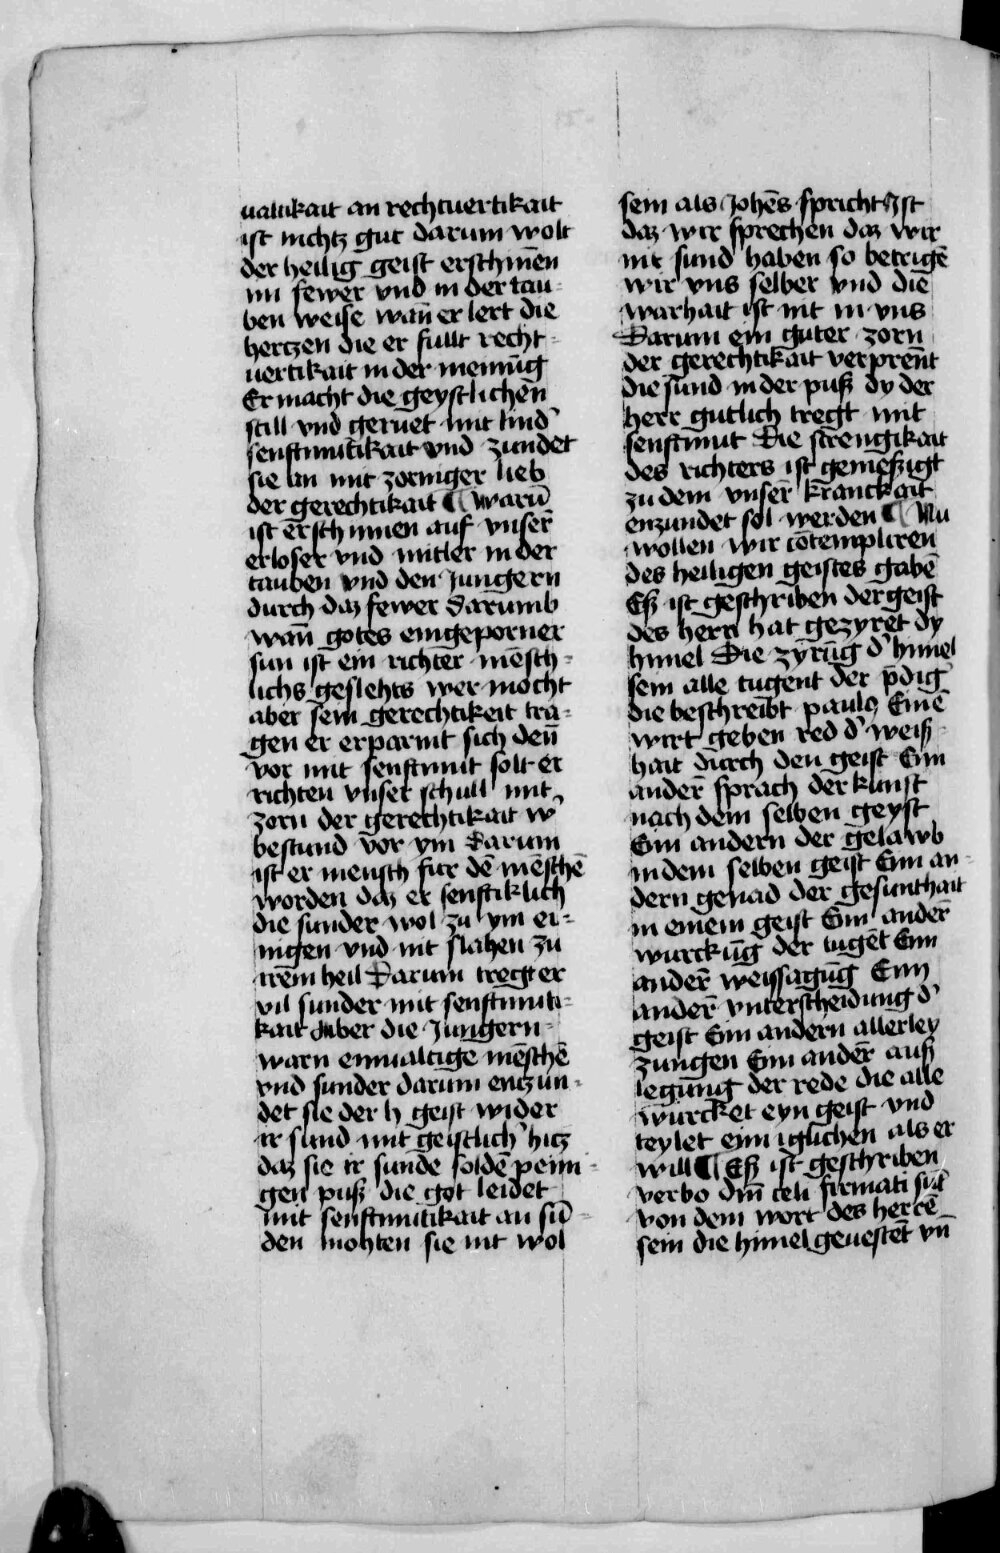 ualtikait an rechtuertikait
ist nichtz gut darum wolt
der heilig geist erschinēn
im fewer vnd in der tau-
ben weise wañ er lert die
hertzen die er fullt recht-
uertikait in der meinūg
Er macht die geystlichen
still vnd geruet mit lind'
senftmutikait vnd zundet
sie an mit zorniger lieb
der gerechtikait ¶ warū
ist erschinnen auf vnser
erloser vnd mitler in der
tauben vnd den Jungern
durch daz fewer darumb
wañ gotes eingeporner
sun ist ein richter mēsch-
lichs geslehts wer mocht
aber sein gerechtikeit tra-
gen er erparmt sich deñ
vor mit senftmut solt er
richten vnser schull mit
zorn der gerechtikait w'
bestund vor ym Darum
ist er mensch fur dē mēschē
worden daz er senftiklich
die sunder wol zu ym ei-
nigen vnd nit slahen zu
irem heil Darum tregt er
vil sunder mit senftmuti-
kait Aber die Jungern-
warn einualtige mēschē
vnd sunder darum enczun-
det sie der h geist wider
ir sund mit geistlich' hicz
daz sie ir sunde soldē peini-
gen puß die got leidet
mit senftmutikait an sū-
den mohten sie nit wol
sein als Johēs spricht Ist
daz wir sprechen daz wir
nit sund haben so betrigē
wir vns selber vnd die
warhait ist nit in vns
Darum ein guter zorn
der gerechtikait verprent
die sund in der puß dy der
herr gutlich tregt mit
senftmut Die strengikait
des richters ist gemeßigt
zu dem vnser kranckait
enzundet sol werden ¶ Nu
wollen wir cōtempliren
des heiligen geistes gabē
Eß ist geschriben der geist
des herrn hat gezyret dy
himel Die zyrūg d' himel
sein alle tugent der p̄dig'
die beschreibt paulꝯ Einē
wirt geben red d' weiß-
hait durch den geist Eim
ander sprach der kunst
nach dem selben geyst
Eim andern der gelawb
in dem selben geist Eim an-
dern genad der gesunthait
in einem geist Eim ander
wurckūg der tugēt Eim
ander weissagūg Eim
ander vnterscheidung d'
geist Eim andern allerley
zungen Eim ander auß
legung der rede die alle
wurcket eyn geist vnd
teylet eim iglichen als er
will ¶ Eß ist geschriben
verbo dñi celi firmati sūt
von dem wort des herrē
sein die himel geuestet vñ